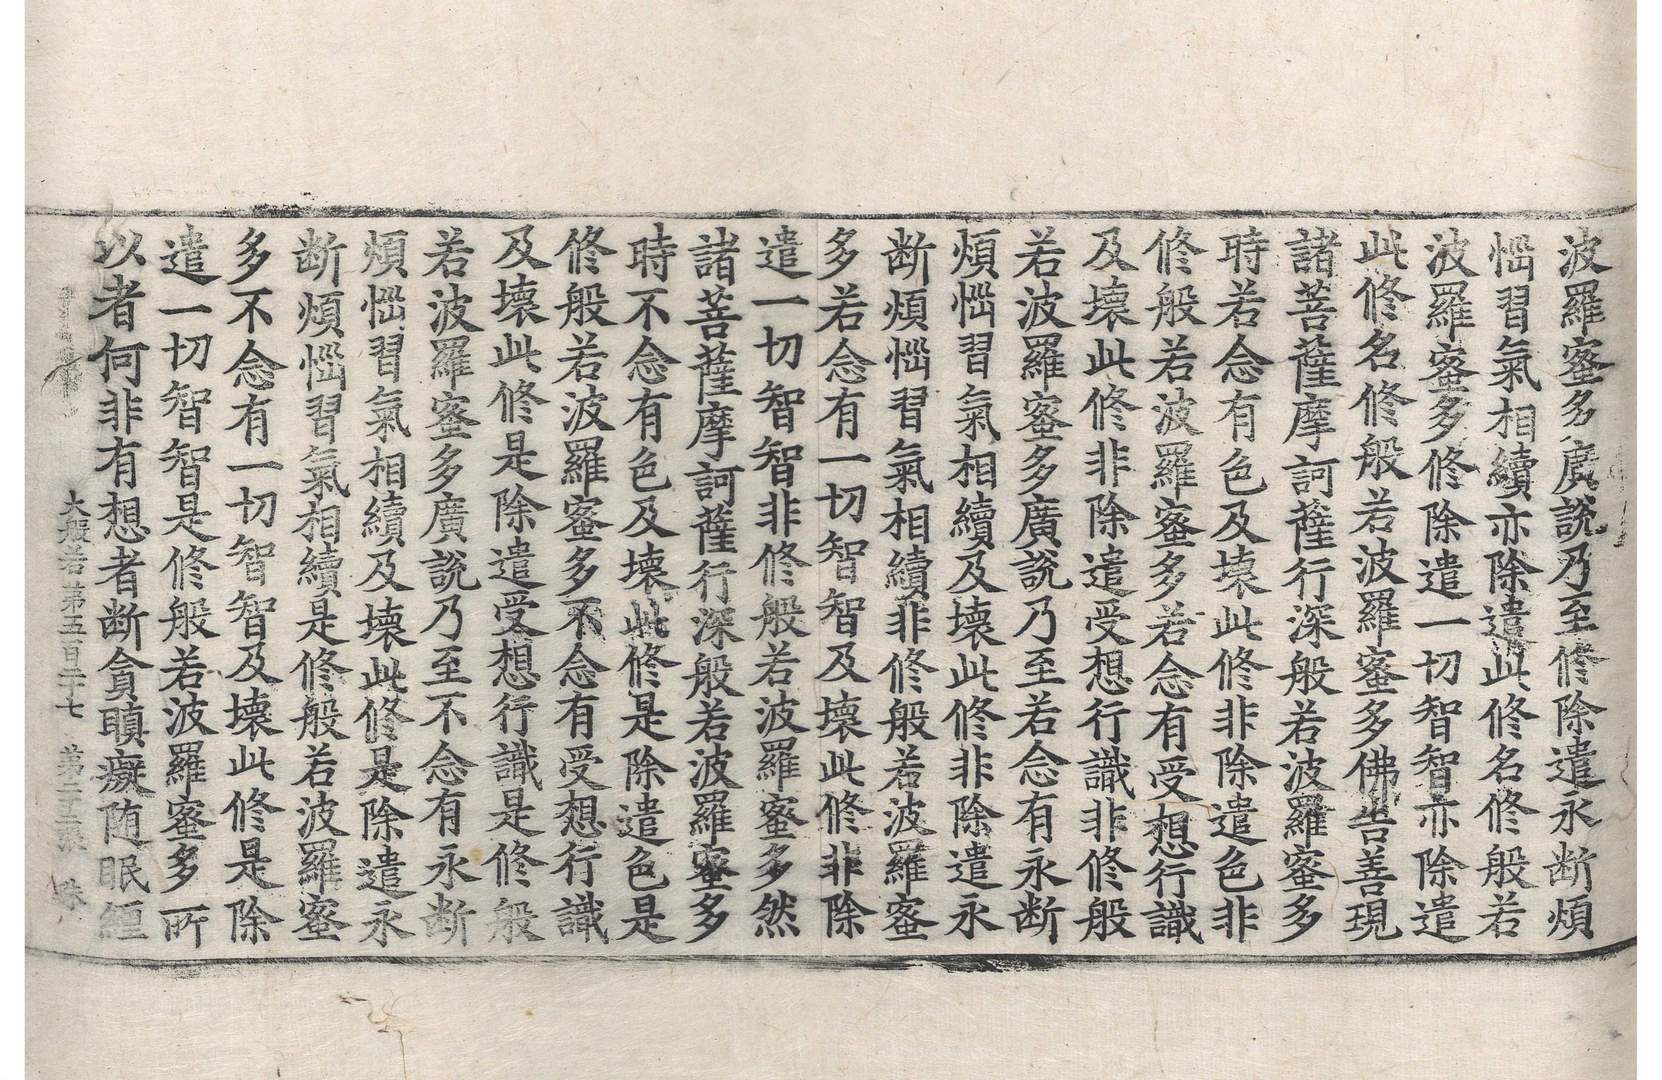 波羅蜜多廣說乃至修除遣永断煩
惱習氣相續亦除遣此修名修般若
波羅蜜多修除遣一切智智亦除遣
此修名修般若波羅蜜多佛告善現
諸菩薩摩訶薩行深般若波羅蜜多
時若念有色及壞此修非除遣色非
修般若波羅蜜多若念有受想行識
及壞此修非除遣受想行識非修般
若波羅蜜多廣說乃至若念有永断
煩惱習氣相續及壞此修非除遣永
断煩惱習氣相續非修般若波羅蜜
多若念有一切智智及壞此修非除
遣一切智智非修般若波羅蜜多然
諸菩薩摩訶薩行深般若波羅蜜多
時不念有色及壞此修是除遣色是
修般若波羅蜜多不念有受想行識
及壞此修是除遣受想行識是修般
若波羅蜜多廣說乃至不念有永断
煩惱習氣相續及壞此修是除遣永
断煩惱習氣相續是修般若波羅蜜
多不念有一切智智及壞此修是除
遣一切智智是修般若波羅蜜多所
以者何非有想者断貪瞋癡随眠纏
大般若第五百二十七 第 張 珠